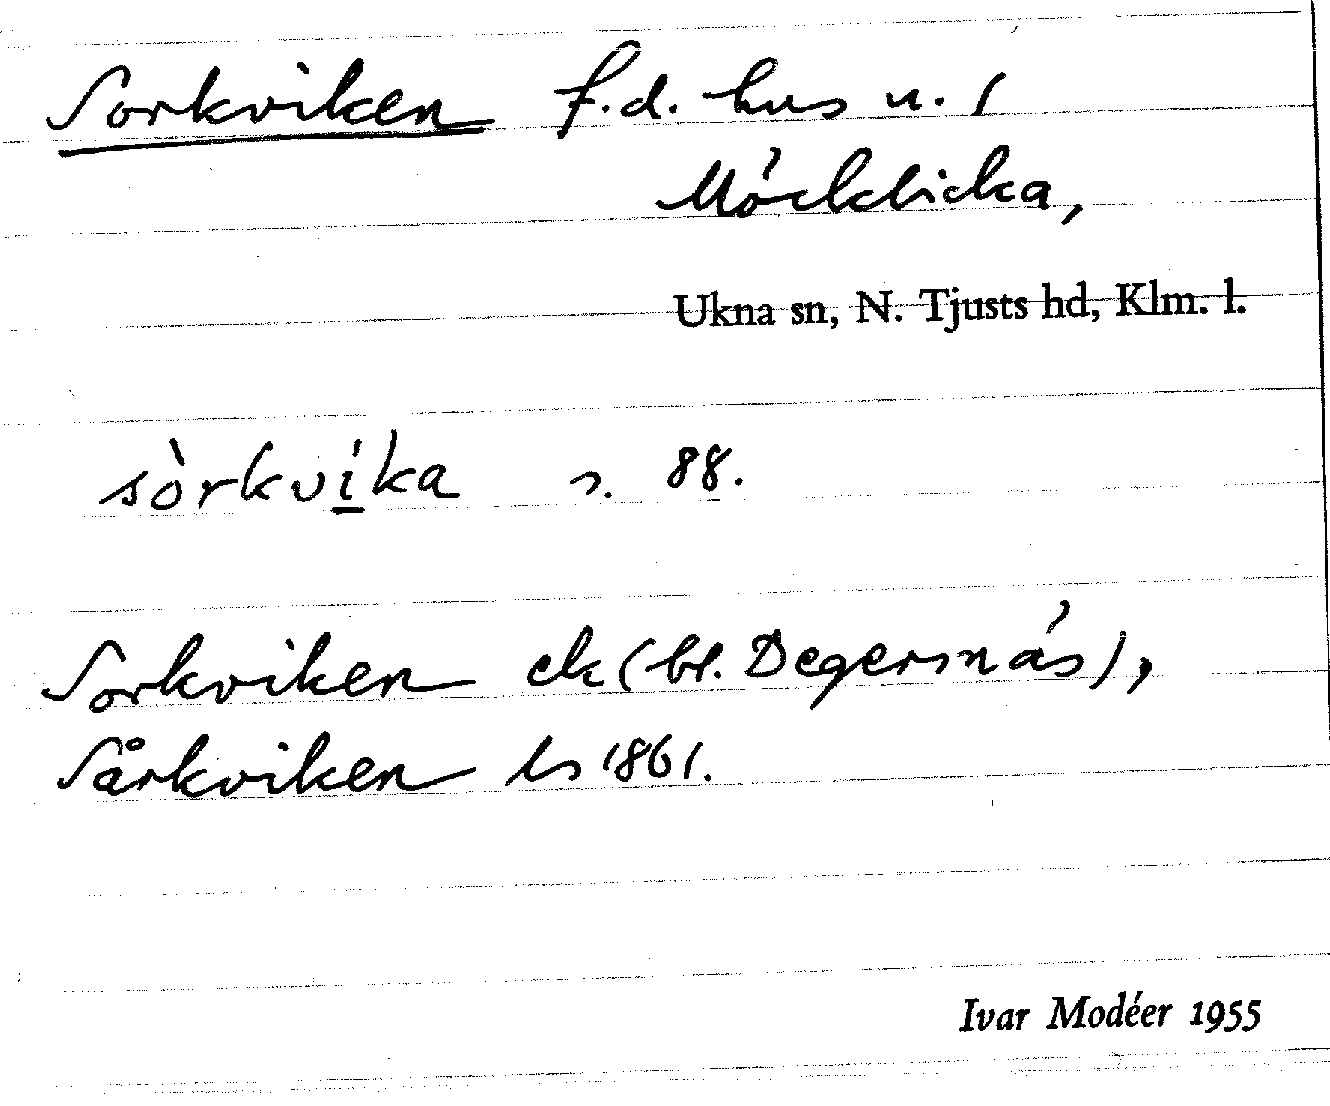 Sorkviken f.d. hus u. /
Möcklicka,
Ukna sn, N. Tjusts hd, Klm. l.
sòrkvíka s. 88.
Sorkviken ek (bl. Degersnäs),
Sårkviken ls 1861.
Ivar Modéer 1955